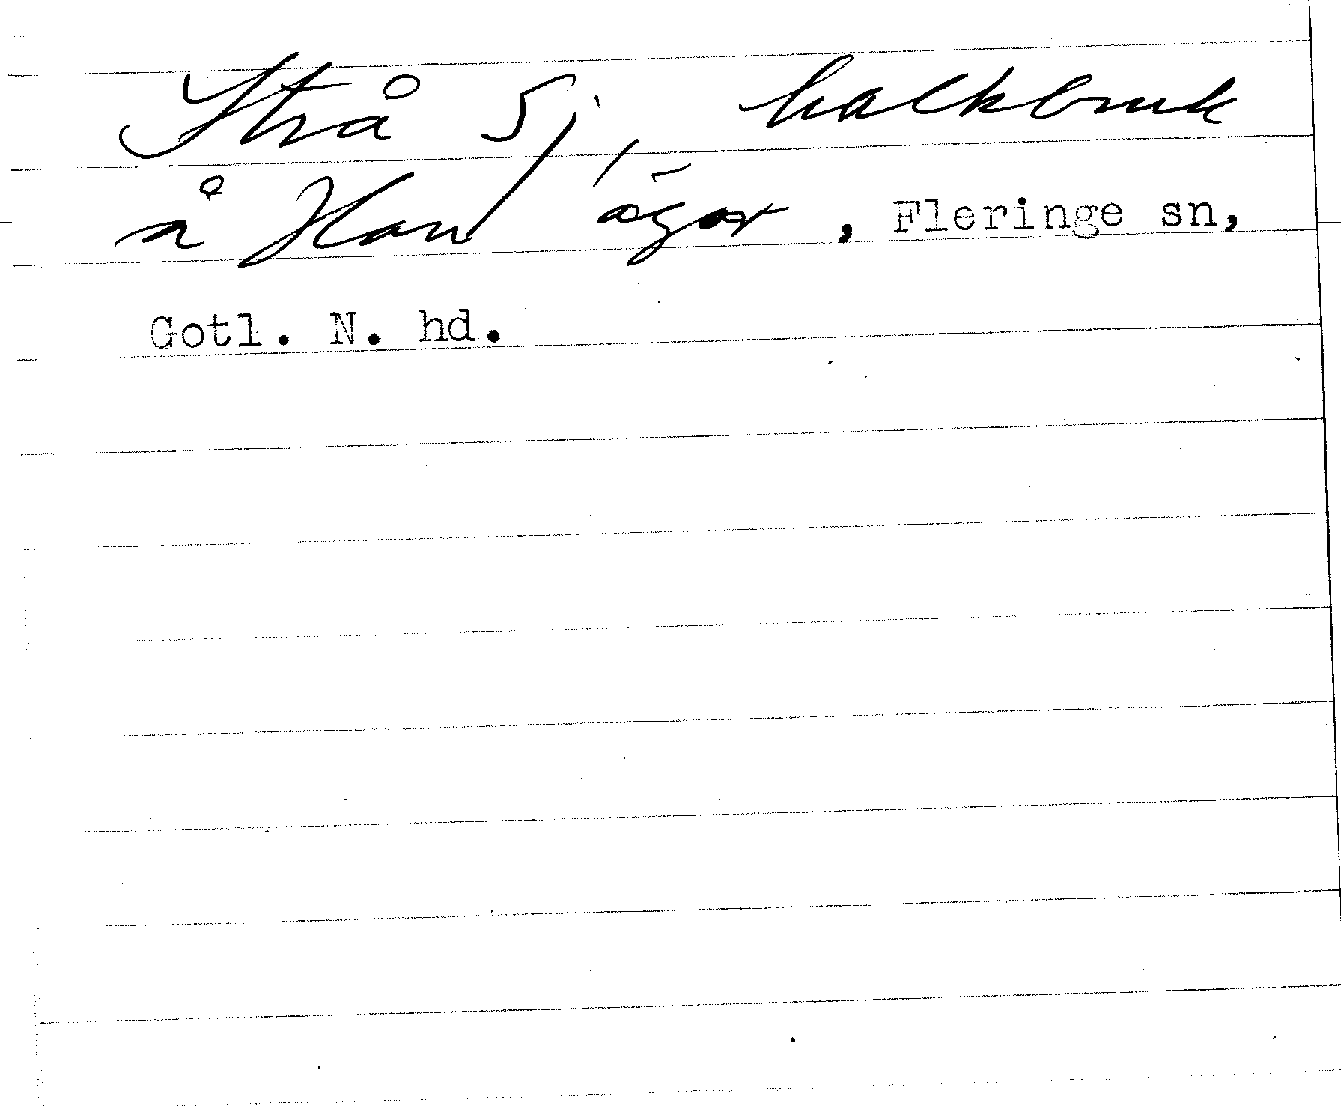 Strå 5j, kalkbruk
å Hau ägor, Fleringe sn,
Gotl. N. hd.